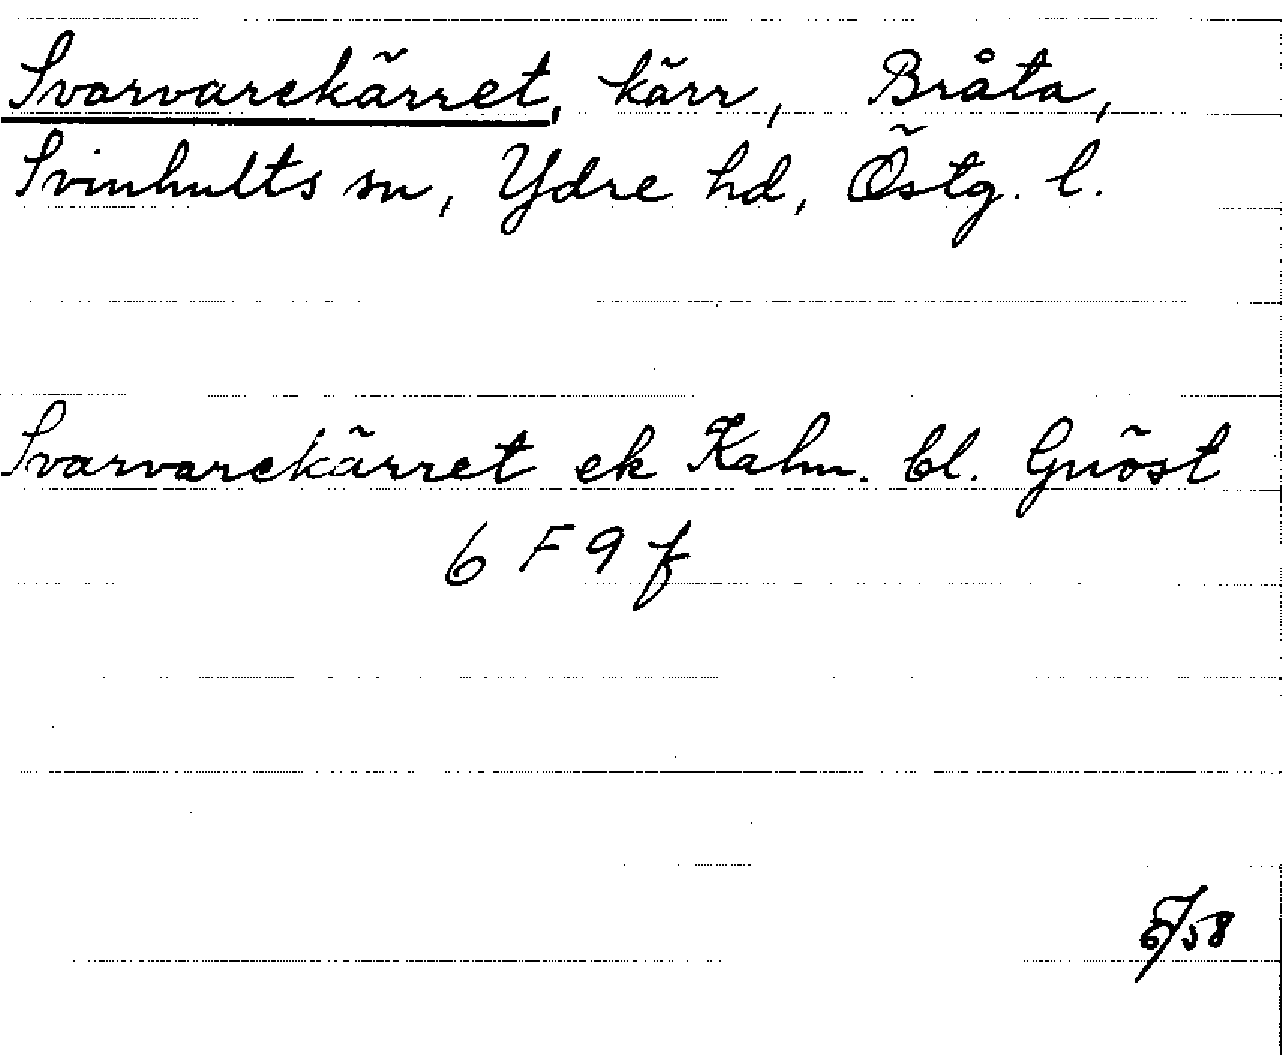 Svarvarekärret, kärr, Bråta,
Svinhults sn, Ydre hd, Östg. l.
Svarvarekärret ek Kalm. bl. Gnöst
6 F 9 f
/58